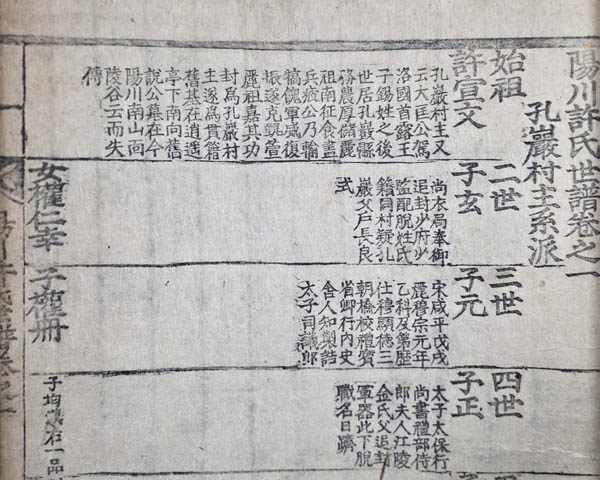 陽川許氏世譜卷之一
孔巖村主系派
始祖
許宣文
孔巖村主又
云大匡公駕
洛國首露王
子錫姓之後
世居孔巖縣
務農厚儲麗
祖南征食盡
兵疲公乃輸
犒饋軍威復
振遂克甄萱
麗祖嘉其功
封爲孔巖村
主遂爲貫籍
舊基在逍遙
亭下南向舊
說公墓在今
陽川南山向
陵谷云而失
傳
二世
子玄
尚衣局奉御
追封少府少
監配脫姓氏
籍同村疑孔
巖父戶長良
式
三世
子元
宋咸平戊戌
麗穆宗元年
乙科及第歷
仕穆顯德三
朝檢校禮賓
省卿行內史
舍人知製誥
太子司議郎
四世
子正
太子太保行
尚書禮部侍
郎夫人江陵
金氏父追封
軍器此下脫
職名日躋
女權仁幸
子權冊